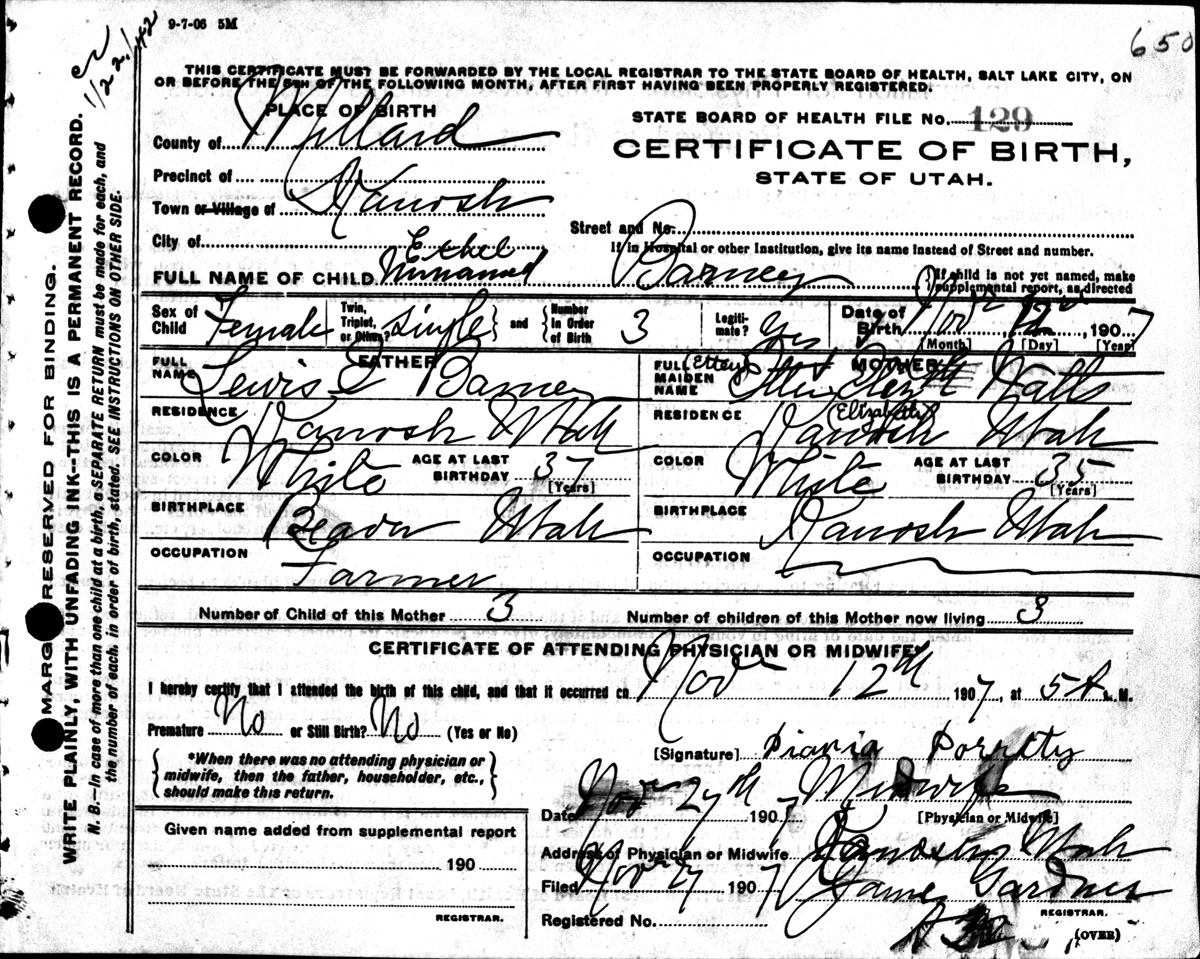 9-7-06 5M
650
1/22/42
THIS CERTIFICATE MUST BE FORWARDED BY THE LOCAL REGISTRAR TO THE STATE BOARD OF HEALTH, SALT LAKE CITY, ON
OR BEFORE THE 5TH OF THE FOLLOWING MONTH, AFTER FIRST HAVING BEEN PROPERLY REGISTERED.
PLACE OF BIRTH
County of Millard
Precinct of
Town or Village of Kanosh
City of
STATE BOARD OF HEALTH FILE No. 129
CERTIFICATE OF BIRTH,
STATE OF UTAH.
Street and No.
If in Hospital or other Institution, give its name instead of Street and number.
Ethel
FULL NAME OF CHILD Unnamed Barney
If child is not yet named, make
supplemental report, as directed
Sex of Child Female
Twin, Triplet, or Other? single and Number In Order of Birth 3
Legiti-mate? Yes
Date of Birth Nov 12, 1907
[Month] [Day] [Year]
FATHER
FULL NAME Lewis E Barney
RESIDENCE Kanosh Utah
COLOR White AGE AT LAST BIRTHDAY 37 [Years]
BIRTHPLACE Beaver Utah
OCCUPATION Farmer
MOTHER
FULL MAIDEN NAME Watts
(Elizabeth)
RESIDENCE Kanosh Utah
COLOR White AGE AT LAST BIRTHDAY 35 [Years]
BIRTHPLACE Kanosh Utah
OCCUPATION
Number of Child of this Mother 3 Number of children of this Mother now living 3
CERTIFICATE OF ATTENDING PHYSICIAN OR MIDWIFE*
I hereby certify that I attended the birth of this child, and that it occurred on Nov 12th 1907, at 5 A. M.
Premature No or Still Birth? No (Yes or No)
*When there was no attending physician or
midwife, then the father, householder, etc.,
should make this return.
[Signature]
Date Nov 27th 1907 Midwife
[Physician or Midwife]
Address of Physician or Midwife Kanosh Utah
Filed Nov 27 1907 James Gardner
REGISTRAR.
Registered No.
(OVER)
Given name added from supplemental report
190
REGISTRAR.
MARGIN RESERVED FOR BINDING.
WRITE PLAINLY, WITH UNFADING INK--THIS IS A PERMANENT RECORD.
N. B.—In case of more than one child at a birth, a SEPARATE RETURN must be made for each, and
the number of each, in order of birth, stated. SEE INSTRUCTIONS ON OTHER SIDE.